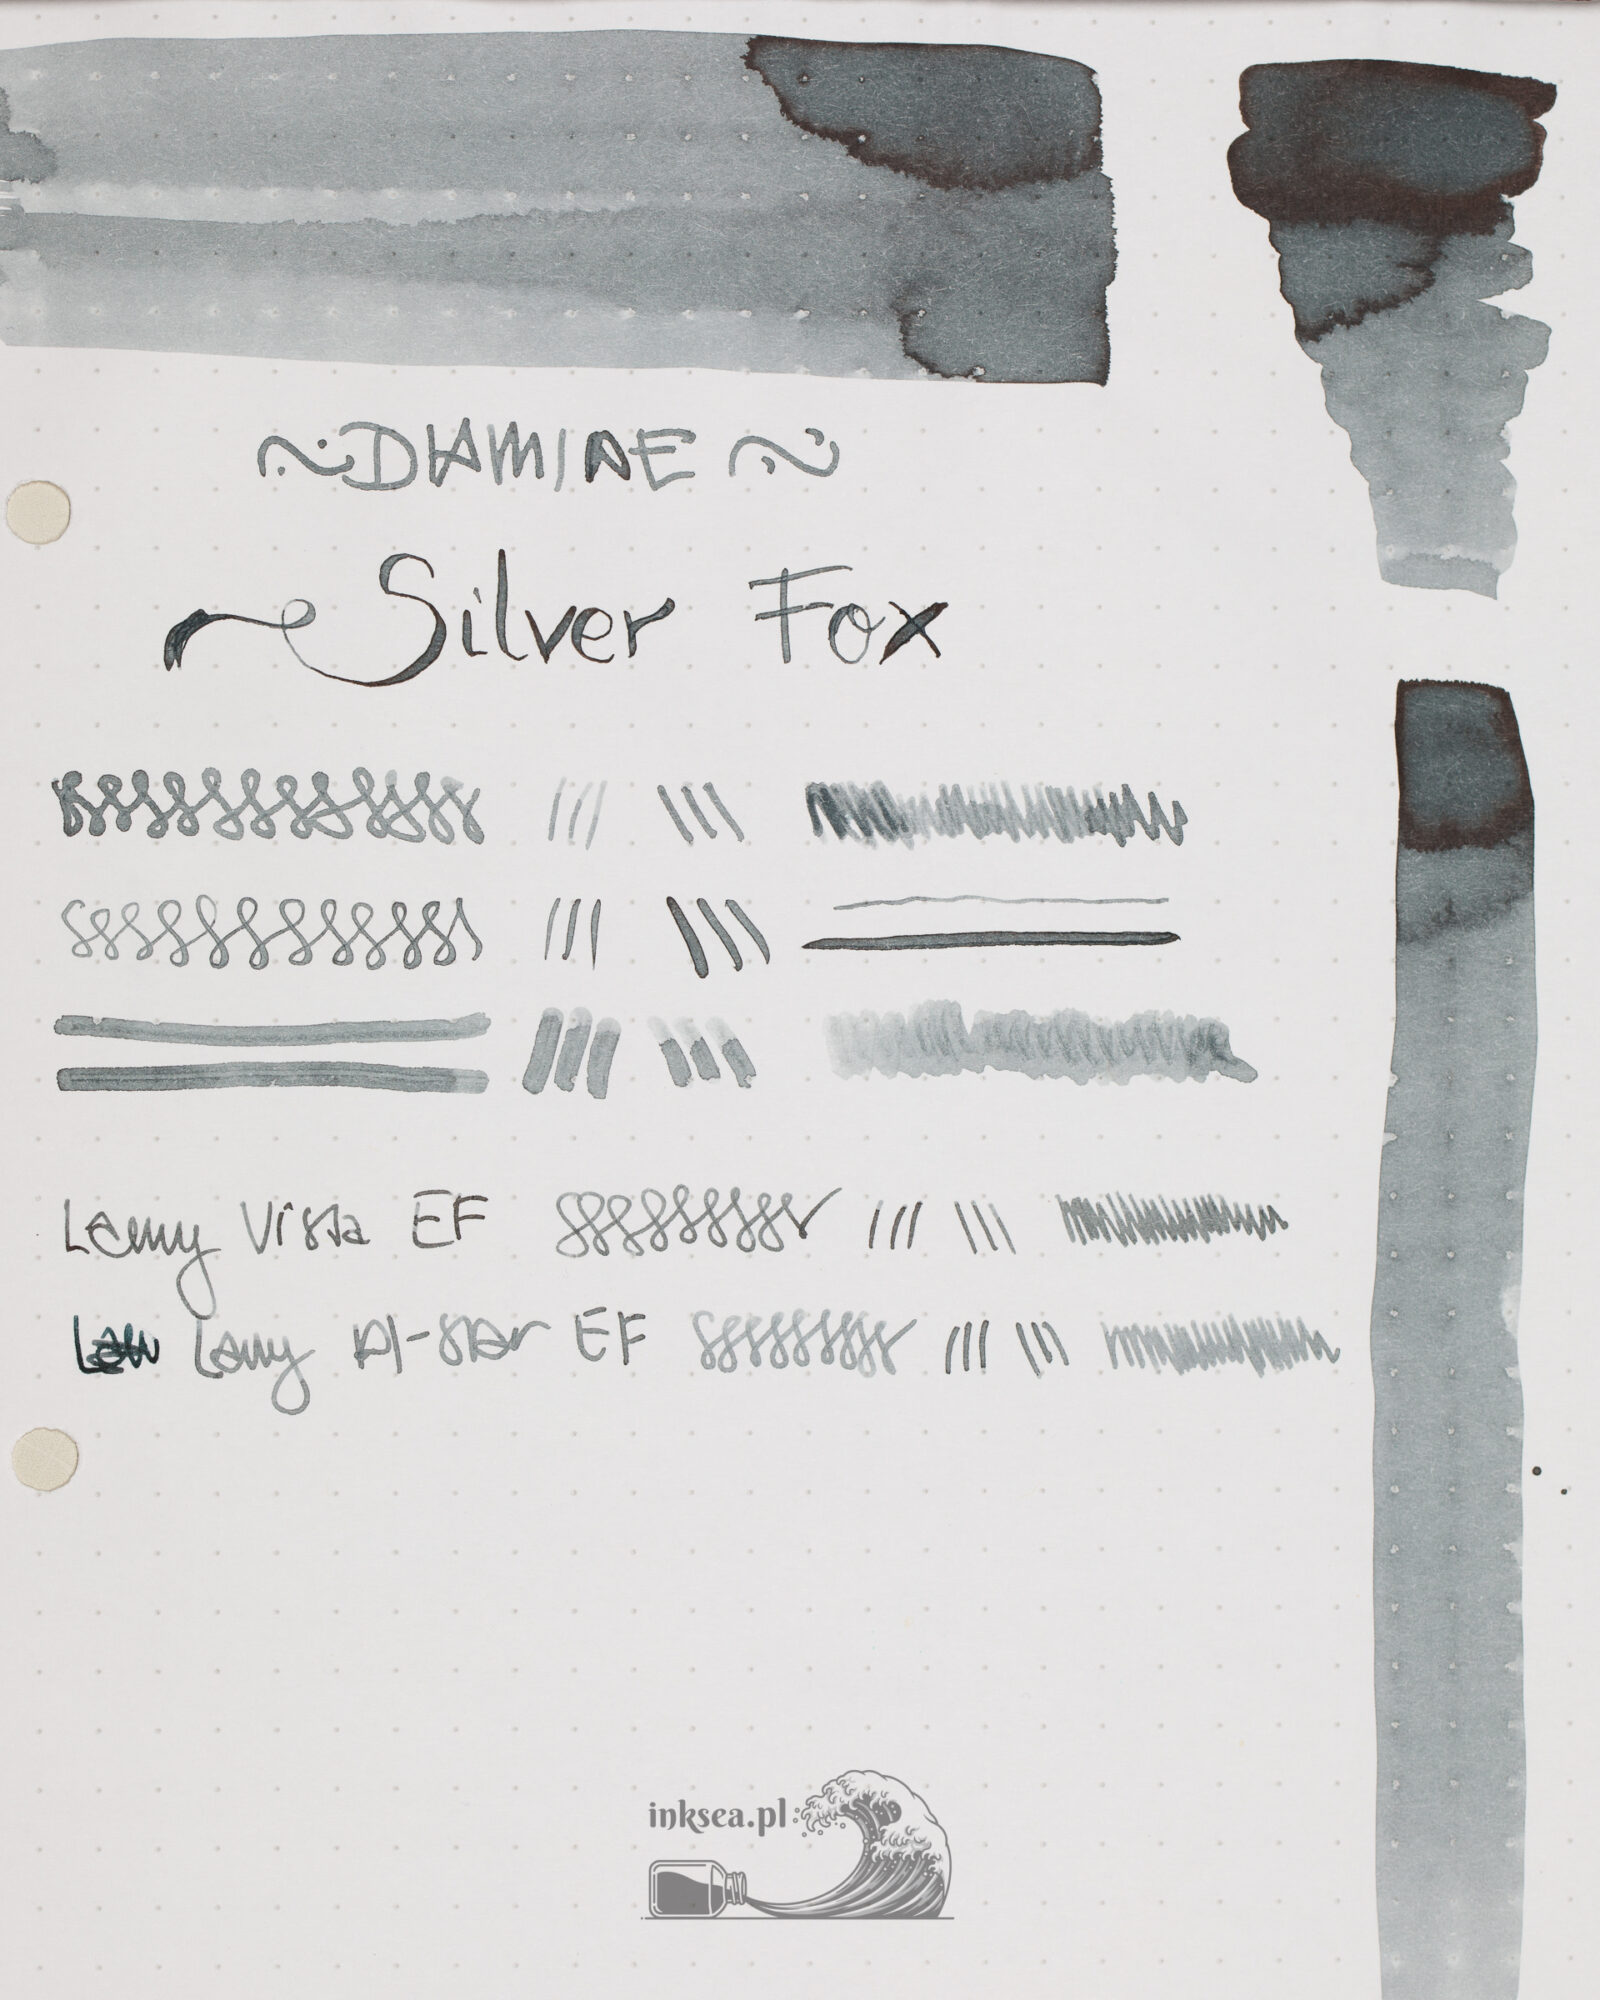 ~ DIAMINE ~
Silver Fox
Lamy Vista EF
Lam Lamy Al-Star EF
inksea.pl